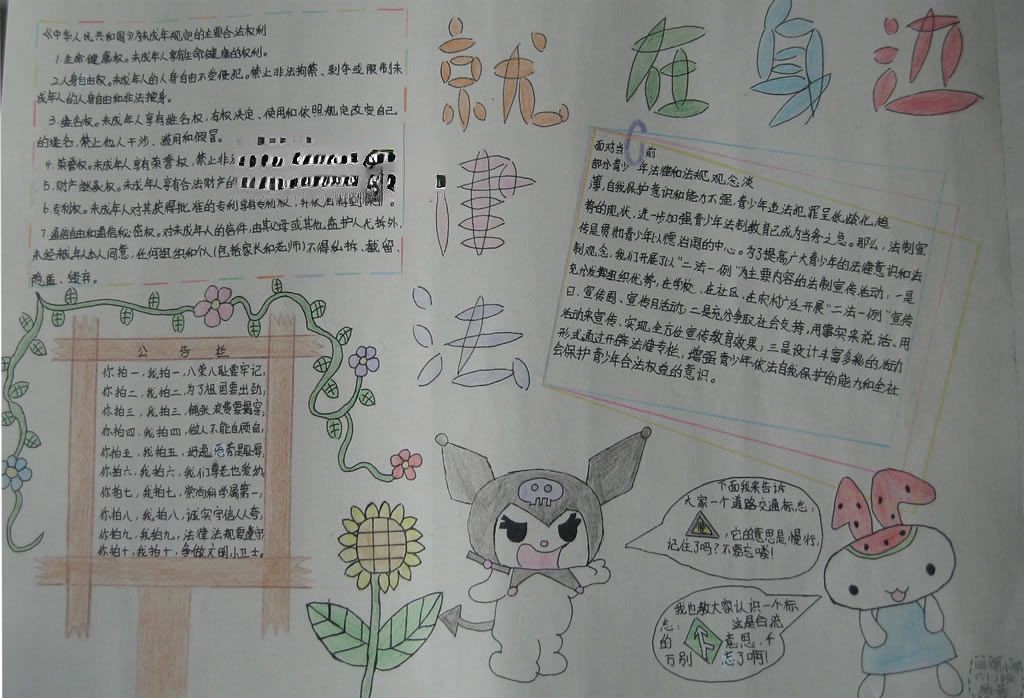 《中华人民共和国》对未成年规定的主要合法权利
1.生命健康权。未成年享有生命健康的权利。
2.人身自由权。未成年人的人身自由不受侵犯。禁止非法拘禁、剥夺或限制未
成年人的人身自由和非法搜身。
3.姓名权。未成年人享有姓名权，有权决定、使用和依照规定改变自己
的姓名，禁止他人干涉、盗用和假冒。
4.荣誉权。未成年人享有荣誉权，禁止非
5.财产继承权。未成年人享有合法财产的
6.专利权。未成年人对其获得批准的专利享有专利
7.通信自由和通信秘密权。对未成年人的信件，由其父母或其他监护人代拆外，
未经成年人本人同意，任何组织和个人（包括家长和老师）不得私拆、截留、
隐匿、毁弃。
就在身边
律
法
面对当前
部分青少年法律和法规观念淡
薄，自我保护意识和能力不强，青少年违法犯罪呈低龄化趋
势的现状，进一步加强青少年法制教育已成为当务之急。那么，法制宣
传是贯彻青少年以德治国的中心。为了提高广大青少年的法律意识和法
制观念，我们开展了以“二法一例”为主要内容的法制宣传活动：一是
充分发挥组织优势，在学校、在社区、在农村广泛开展“二法一例”宣传
日、宣传周、宣传月活动；二是充分争取社会支持，用事实来说话、用
活动来宣传，实现全方位宣传教育效果；三是设计丰富多彩的活动
形式通过开辟法律专栏，增强青少年依法自我保护的能力和全社
会保护青少年合法权益的意识。
公告栏
你拍一，我拍一，八荣八耻要牢记，
你拍二，我拍二，为了祖国要出劲；
你拍三，我拍三，铺张浪费要揭穿；
你拍四，我拍四，做人不能自顾自；
你拍五，我拍五，好逸恶劳是耻辱；
你拍六，我拍六，我们尊老也爱幼
你拍七，我拍七，崇尚科学属第一，
你拍八，我拍八，诚实守信人人夸；
你拍九，我拍九，法律法规要遵守
你拍十，我拍十，争做文明小卫士。
下面我来告诉
大家一个道路交通标志，
慢
，它的意思是慢行，
记住了吗？不要忘喽！
我也教大家认识一个标
志：这是白流
的意思，千
万别忘了啊！